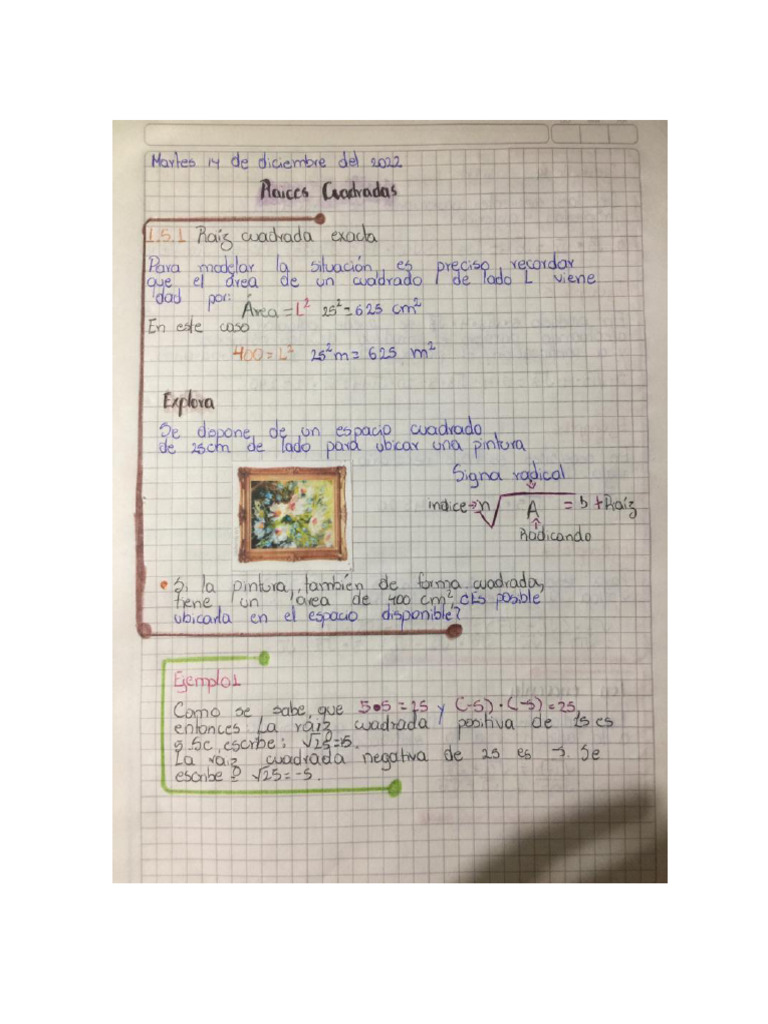 Martes 14 de diciembre del 2022
Raices Cuadradas
1.5.1 Raíz cuadrada exacta
Para modelar la situación, es preciso recordar
que el área de un cuadrado l de lado L viene
dad por: Área = L² 25²=625 cm²
En este caso
400=L² 25²m=625 m²
Explora
Se dopone de un espacio cuadrado
de 25cm de lado para ubicar una pintura
Signa radical
indice→n√ A = b + Raíz
Radicando
• S. la pintura, también de forma cuadrada,
tiene un área de 400 cm² ¿Es posible
ubicarla en el espacio disponible?
Ejemplo1
Como se sabe, que 5•5=25 y (-5)•(-5)=25,
entonces: La raíz cuadrada positiva de
escribe: √25=5.
La raiz cuadrada negativa de 25 es -5. Se
escribe √25=-5.